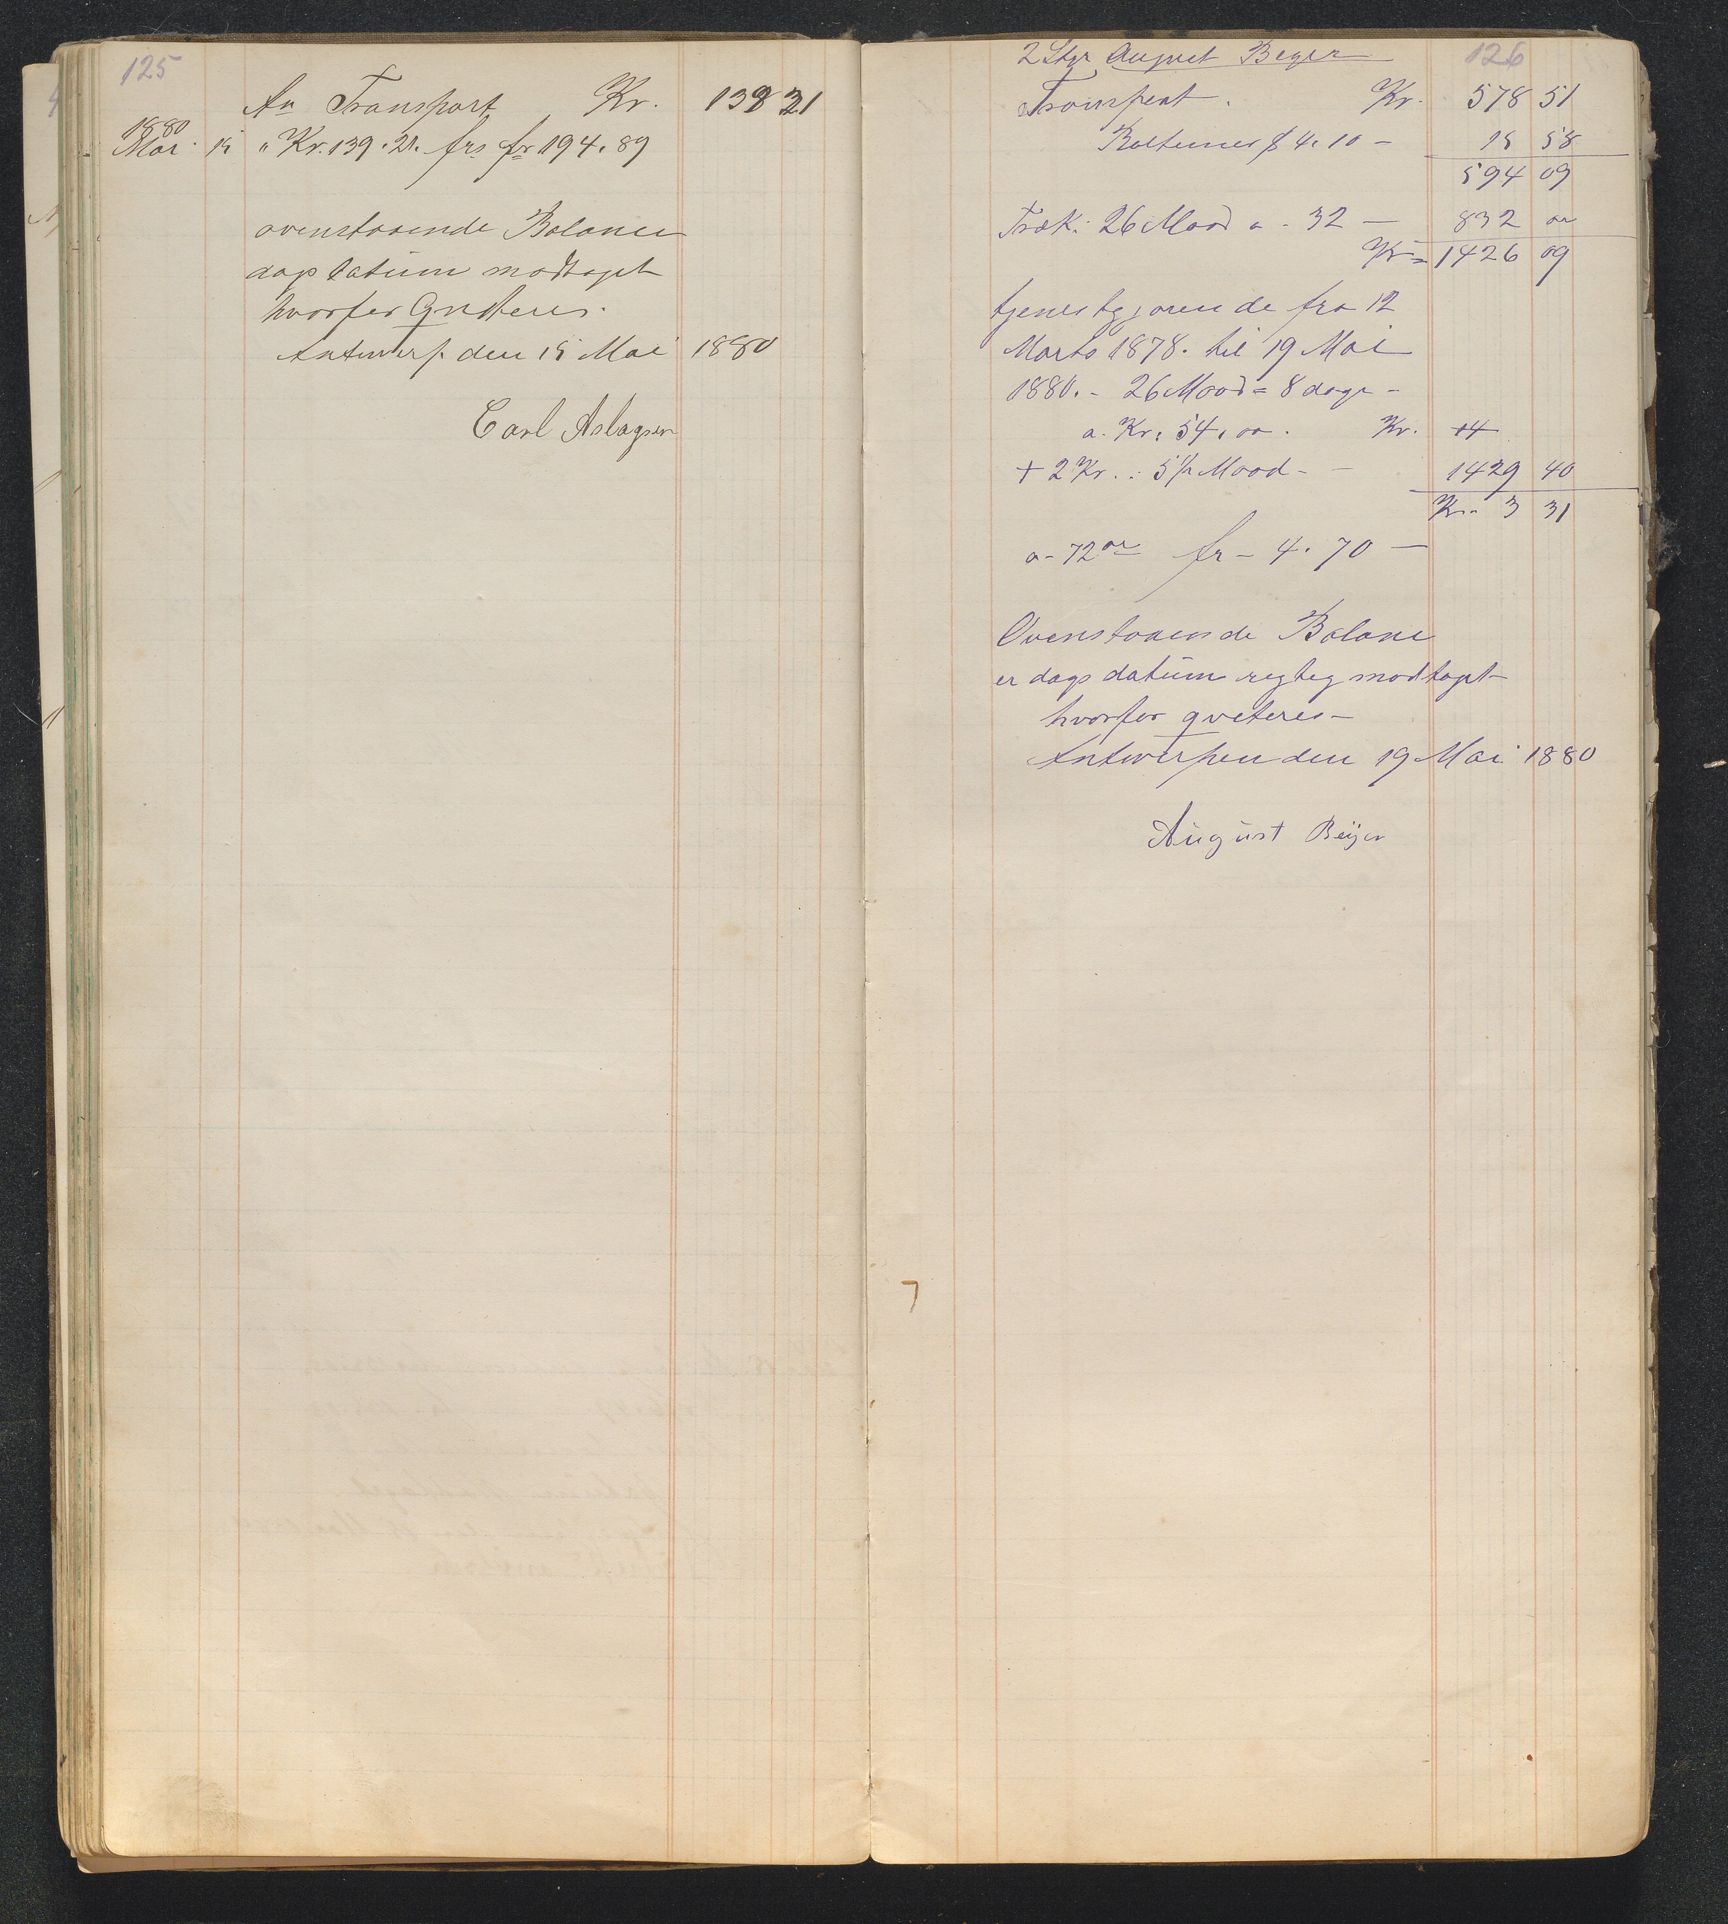 125
An Transport Kr. 139 21
1880
Mai 15 " Kr. 139.21. frs fr 194.89
ovenstaaende Balance
dags datum modtaget
hvorfor Qviteres.
Antwerp. den 15 Mai 1880
Carl Aslagsen
126
2 Styr August Beyer
Transport. Kr. 578 51
$ 4.10 - 15 58
594 09
Træk: 26 Maad a - 32 — 832 oo
Kr = 1426 09
tjenestgjørende fra 12
Marts 1878. til 19 Mai
1880. - 26 Maad = 8 dage -
a. Kr. 54,00. Kr. 14
+ 2 Kr. : 5 1/2 Maad - - 1429 40
Kr. 3 31
a - 72 ør fr - 4.70 —
Ovenstaaende Balance
er dags datum rigteg modtaget
hvorfor qviteres -
Antwerpen den 19 Mai 1880
August Beijer